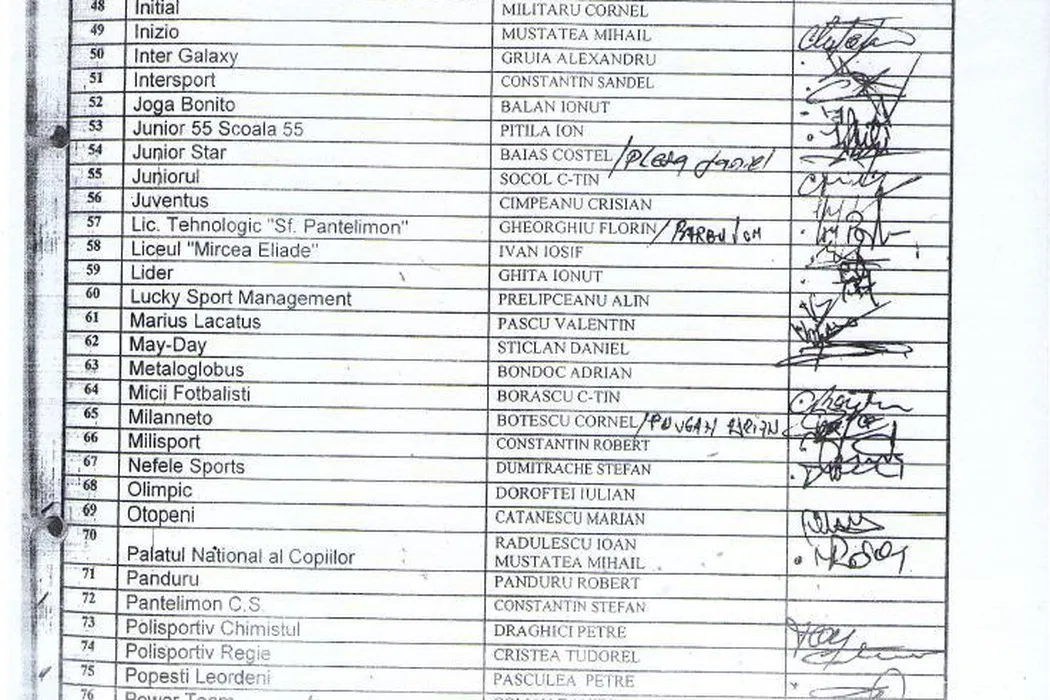 48 Initial MILITARU CORNEL
49 Inizio MUSTATEA MIHAIL
50 Inter Galaxy GRUIA ALEXANDRU
51 Intersport CONSTANTIN SANDEL
52 Joga Bonito BALAN IONUT
53 Junior 55 Scoala 55 PITILA ION
54 Junior Star BAIAS COSTEL /
55 Juniorul SOCOL C-TIN
56 Juventus CIMPEANU CRISIAN
57 Lic. Tehnologic "Sf. Pantelimon" GHEORGHIU FLORIN / BARBU ION
58 Liceul "Mircea Eliade" IVAN IOSIF
59 Lider GHITA IONUT
60 Lucky Sport Management PRELIPCEANU ALIN
61 Marius Lacatus PASCU VALENTIN
62 May-Day STICLAN DANIEL
63 Metaloglobus BONDOC ADRIAN
64 Micii Fotbalisti BORASCU C-TIN
65 Milanneto BOTESCU CORNEL /
66 Milisport CONSTANTIN ROBERT
67 Nefele Sports DUMITRACHE STEFAN
68 Olimpic DOROFTEI IULIAN
69 Otopeni CATANESCU MARIAN
70 RADULESCU IOAN
Palatul National al Copiilor MUSTATEA MIHAIL
71 Panduru PANDURU ROBERT
72 Pantelimon C.S. CONSTANTIN STEFAN
73 Polisportiv Chimistul DRAGHICI PETRE
74 Polisportiv Regie CRISTEA TUDOREL
75 Popesti Leordeni PASCULEA PETRE
76 Power Team